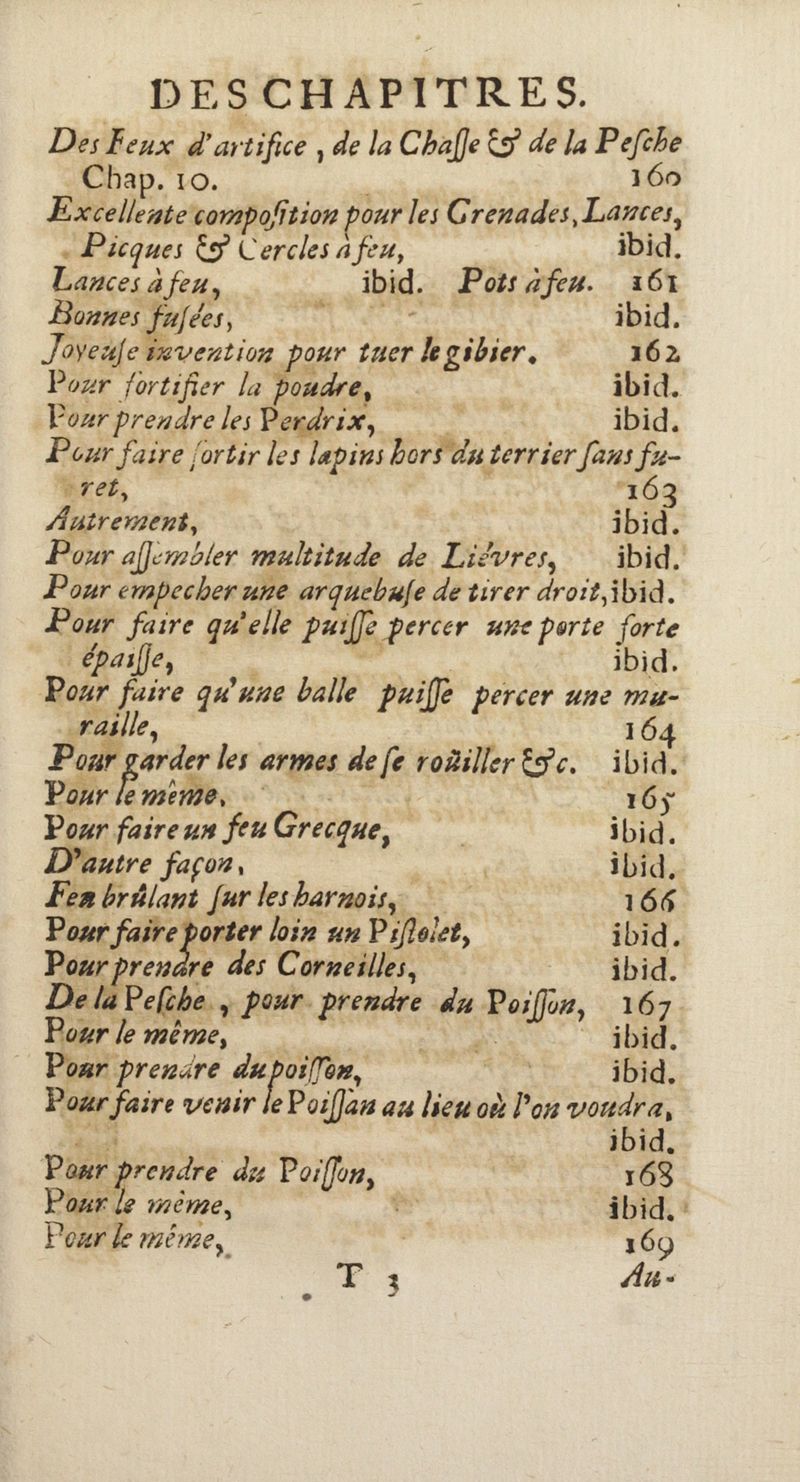 DES CHAPITRES.
Des Feux d'artifice , de la Chaſſe & de la Peſche
Chap. 10. 160
Excellente compoſition pour les Grenades, Lances,
Picques & Cercles à feu, ibid.
Lances à feu, ibid. Pots à feu. 161
Bonnes fuſées, ibid.
Joyeuſe invention pour tuer le gibier. 162
Pour fortifier la poudre, ibid.
Pour prendre les Perdrix, ibid.
Pour faire ſortir les lapins hors du terrier ſans fu-
ret, 163
Autrement, ibid.
Pour aſſembler multitude de Liévres, ibid.
Pour empecher une arquebuſe de tirer droit, ibid.
Pour faire qu'elle puiſſe percer une porte forte
épaiſſe, ibid.
Pour faire qu'une balle puiſſe percer une mu-
raille, 164
Pour garder les armes de ſe roüiller &c. ibid.
Pour le méme, 165
Pour faire un feu Grecque, ibid.
D'autre façon, ibid.
Feu brûlant ſur les harnois, 166
Pour faire porter loin un Piſtolet, ibid.
Pour prendre des Corneilles, ibid.
De la Peſche , pour prendre du Poiſſon, 167
Pour le même, ibid.
Pour prendre du poiſſon, ibid.
Pour faire venir le Poiſſan au lieu où l'on voudra,
ibid.
Pour prendre du Poiſſon, 168
Pour le même, ibid.
Pour le même, 169
T 3 Au-